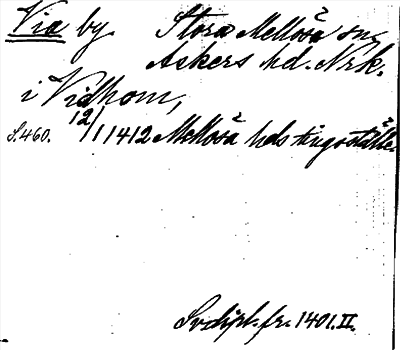 Via by. Stora Mellösa sn,
Askers hd. Nrk.
i Vidhom,
S.460. 12/1 1412 Mellösa hds tingsställe.
Svdipl. fr. 1401. II.